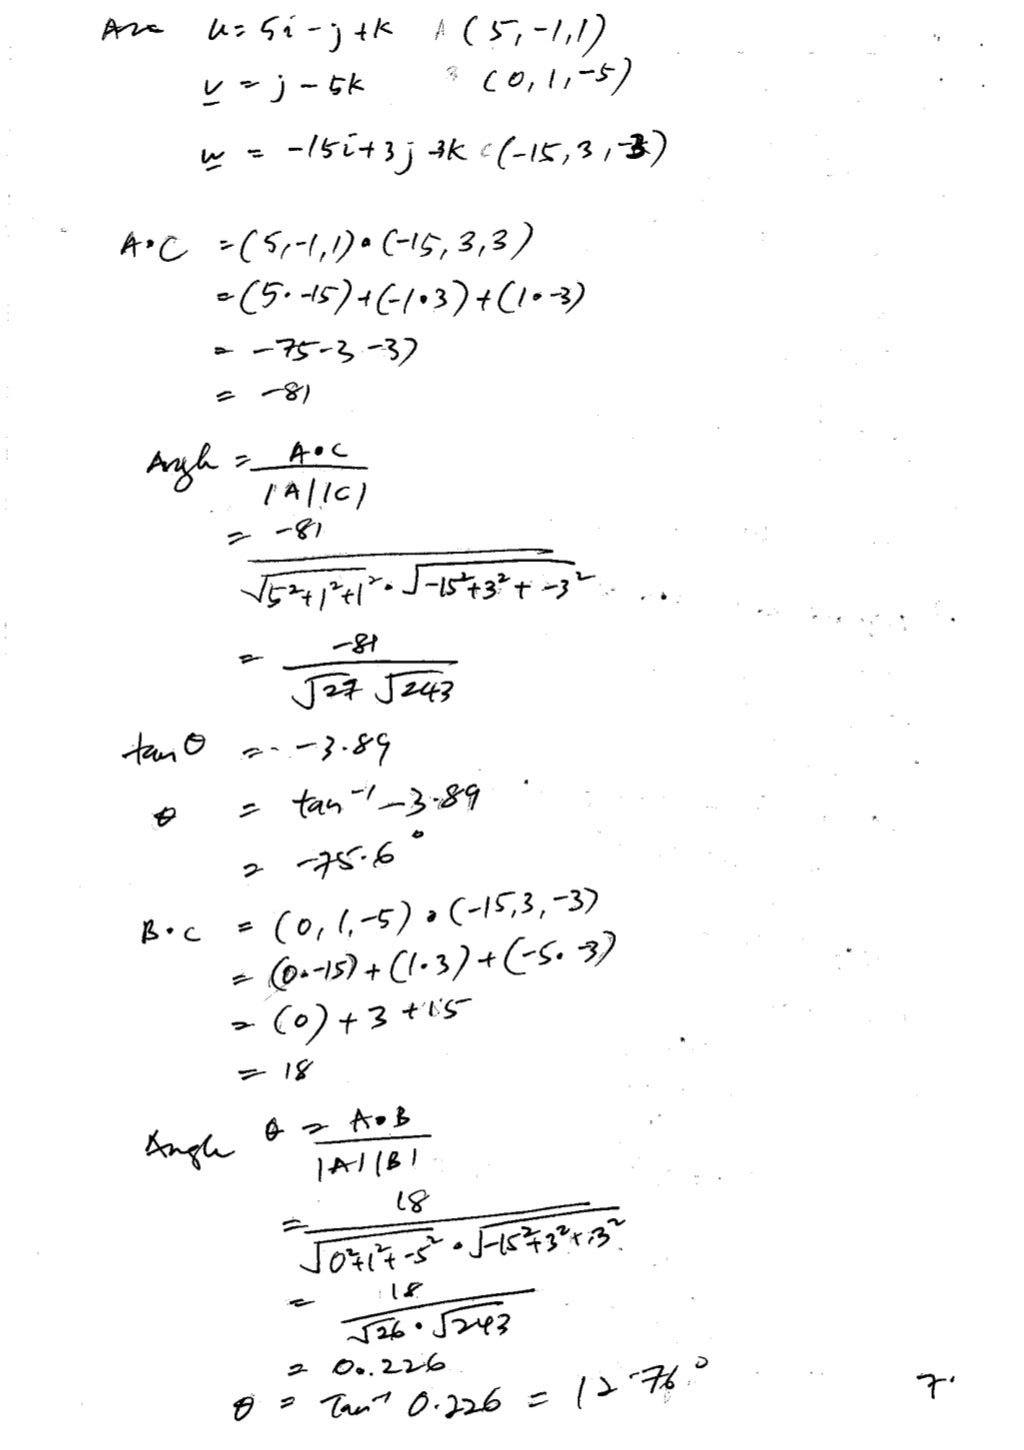 u = 5i - j + k A (5, -1, 1)
v = j - 5k B (0, 1, -5)
w = -15i + 3j - 3k C (-15, 3, -3)
A•C = (5, -1, 1) • (-15, 3, 3)
= (5 • -15) + (-1 • 3) + (1 • -3)
= -75 - 3 - 3)
= -81
Angle = A•C / |A| |C|
= -81 / √5²+1²+1² • √-15²+3²+-3²
= -81 / √27 √243
tan θ = -3.89
θ = tan⁻¹ -3.89
= -75.6°
B•C = (0, 1, -5) • (-15, 3, -3)
= (0 • -15) + (1 • 3) + (-5 • -3)
= (0) + 3 + 15
= 18
Angle θ = A•B / |A| |B|
= 18 / √0²+1²+-5² • √-15²+3²+-3²
= 18 / √26 • √243
= 0.226
θ = Tan⁻¹ 0.226 = 12.76°
7.